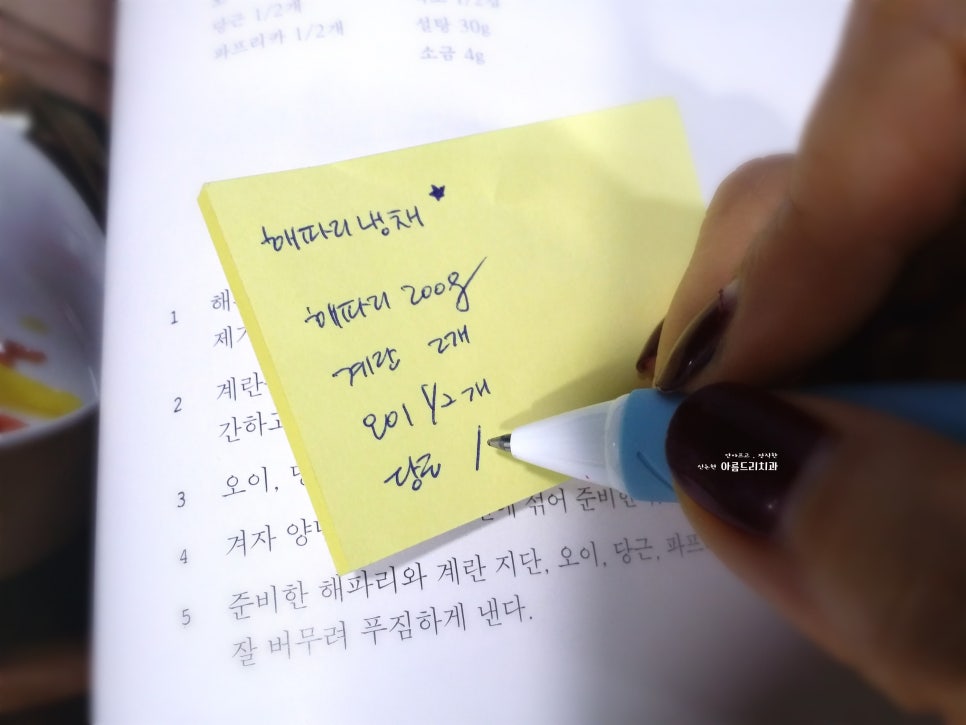 당근 1/2개
파프리카 1/2개
설탕 30g
소금 4g
해파리냉채
해파리 200g
계란 2개
오이 1/2개
당근 1
1 해
제거
2 계란
간하고
3 오이,
4 겨자 양 섞어 준비한
5 준비한 해파리와 계란 지단, 오이, 당근, 파프
잘 버무려 푸짐하게 낸다.
안아프고. 양심한
신논현 아름드리치과